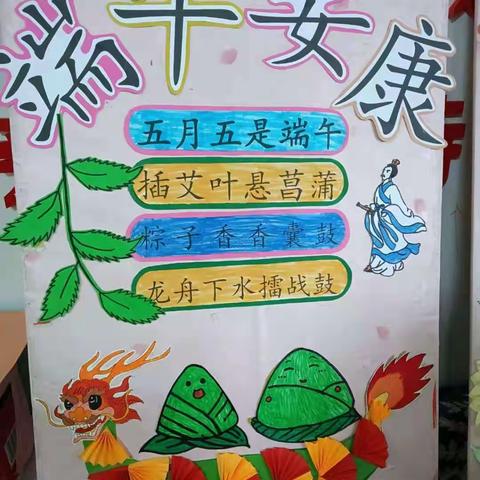 端午安康
五月五是端午
插艾叶悬菖蒲
粽子香香囊鼓
龙舟下水擂战鼓